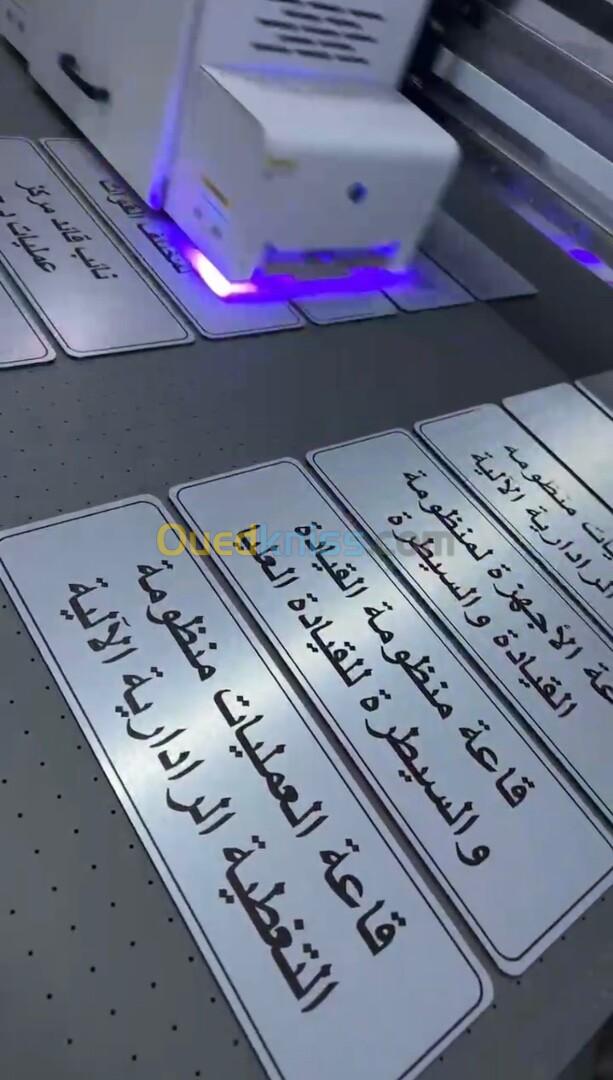 نائب قائد مركز
عمليات
لمختلف القوات
منظومة
الرادارية الآلية
الأجهزة لمنظومة
القيادة والسيطرة
قاعة منظومة القيادة
والسيطرة للقيادة
قاعة العمليات منظومة
التغطية الرادارية الآلية
Ouedkniss.com